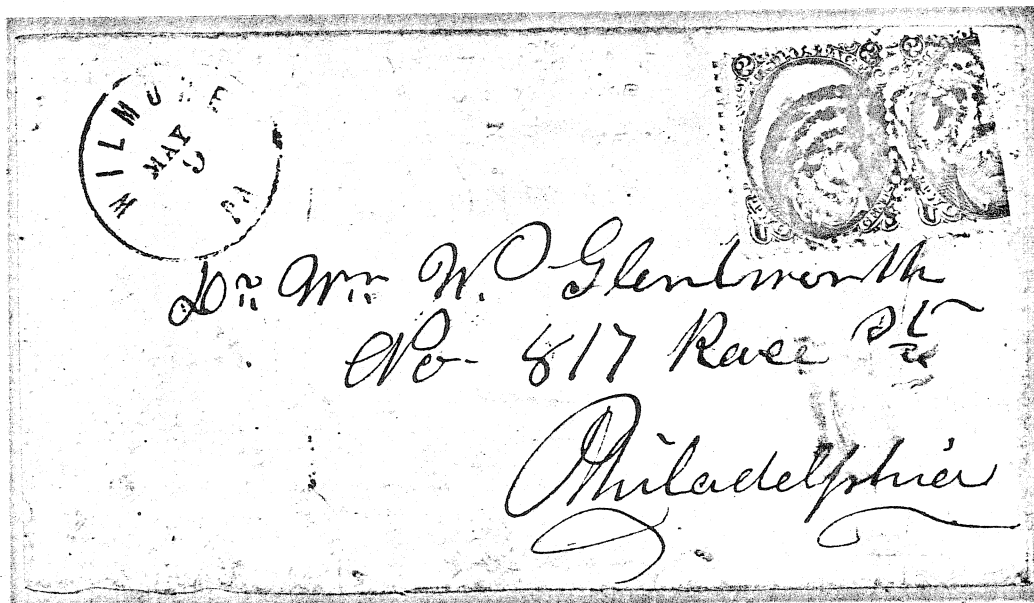 WILMORE
MAY
PA
Dr. Wm W. Glentworth
No- 817 Race St
Philadelphia